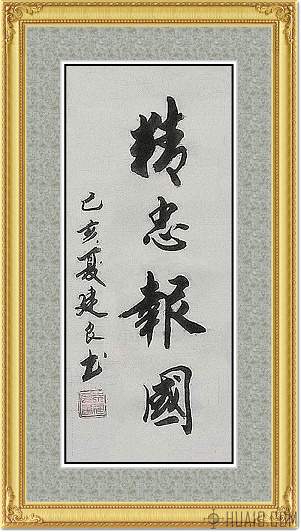 精忠報國
己亥夏建良书
HUAIG.COM